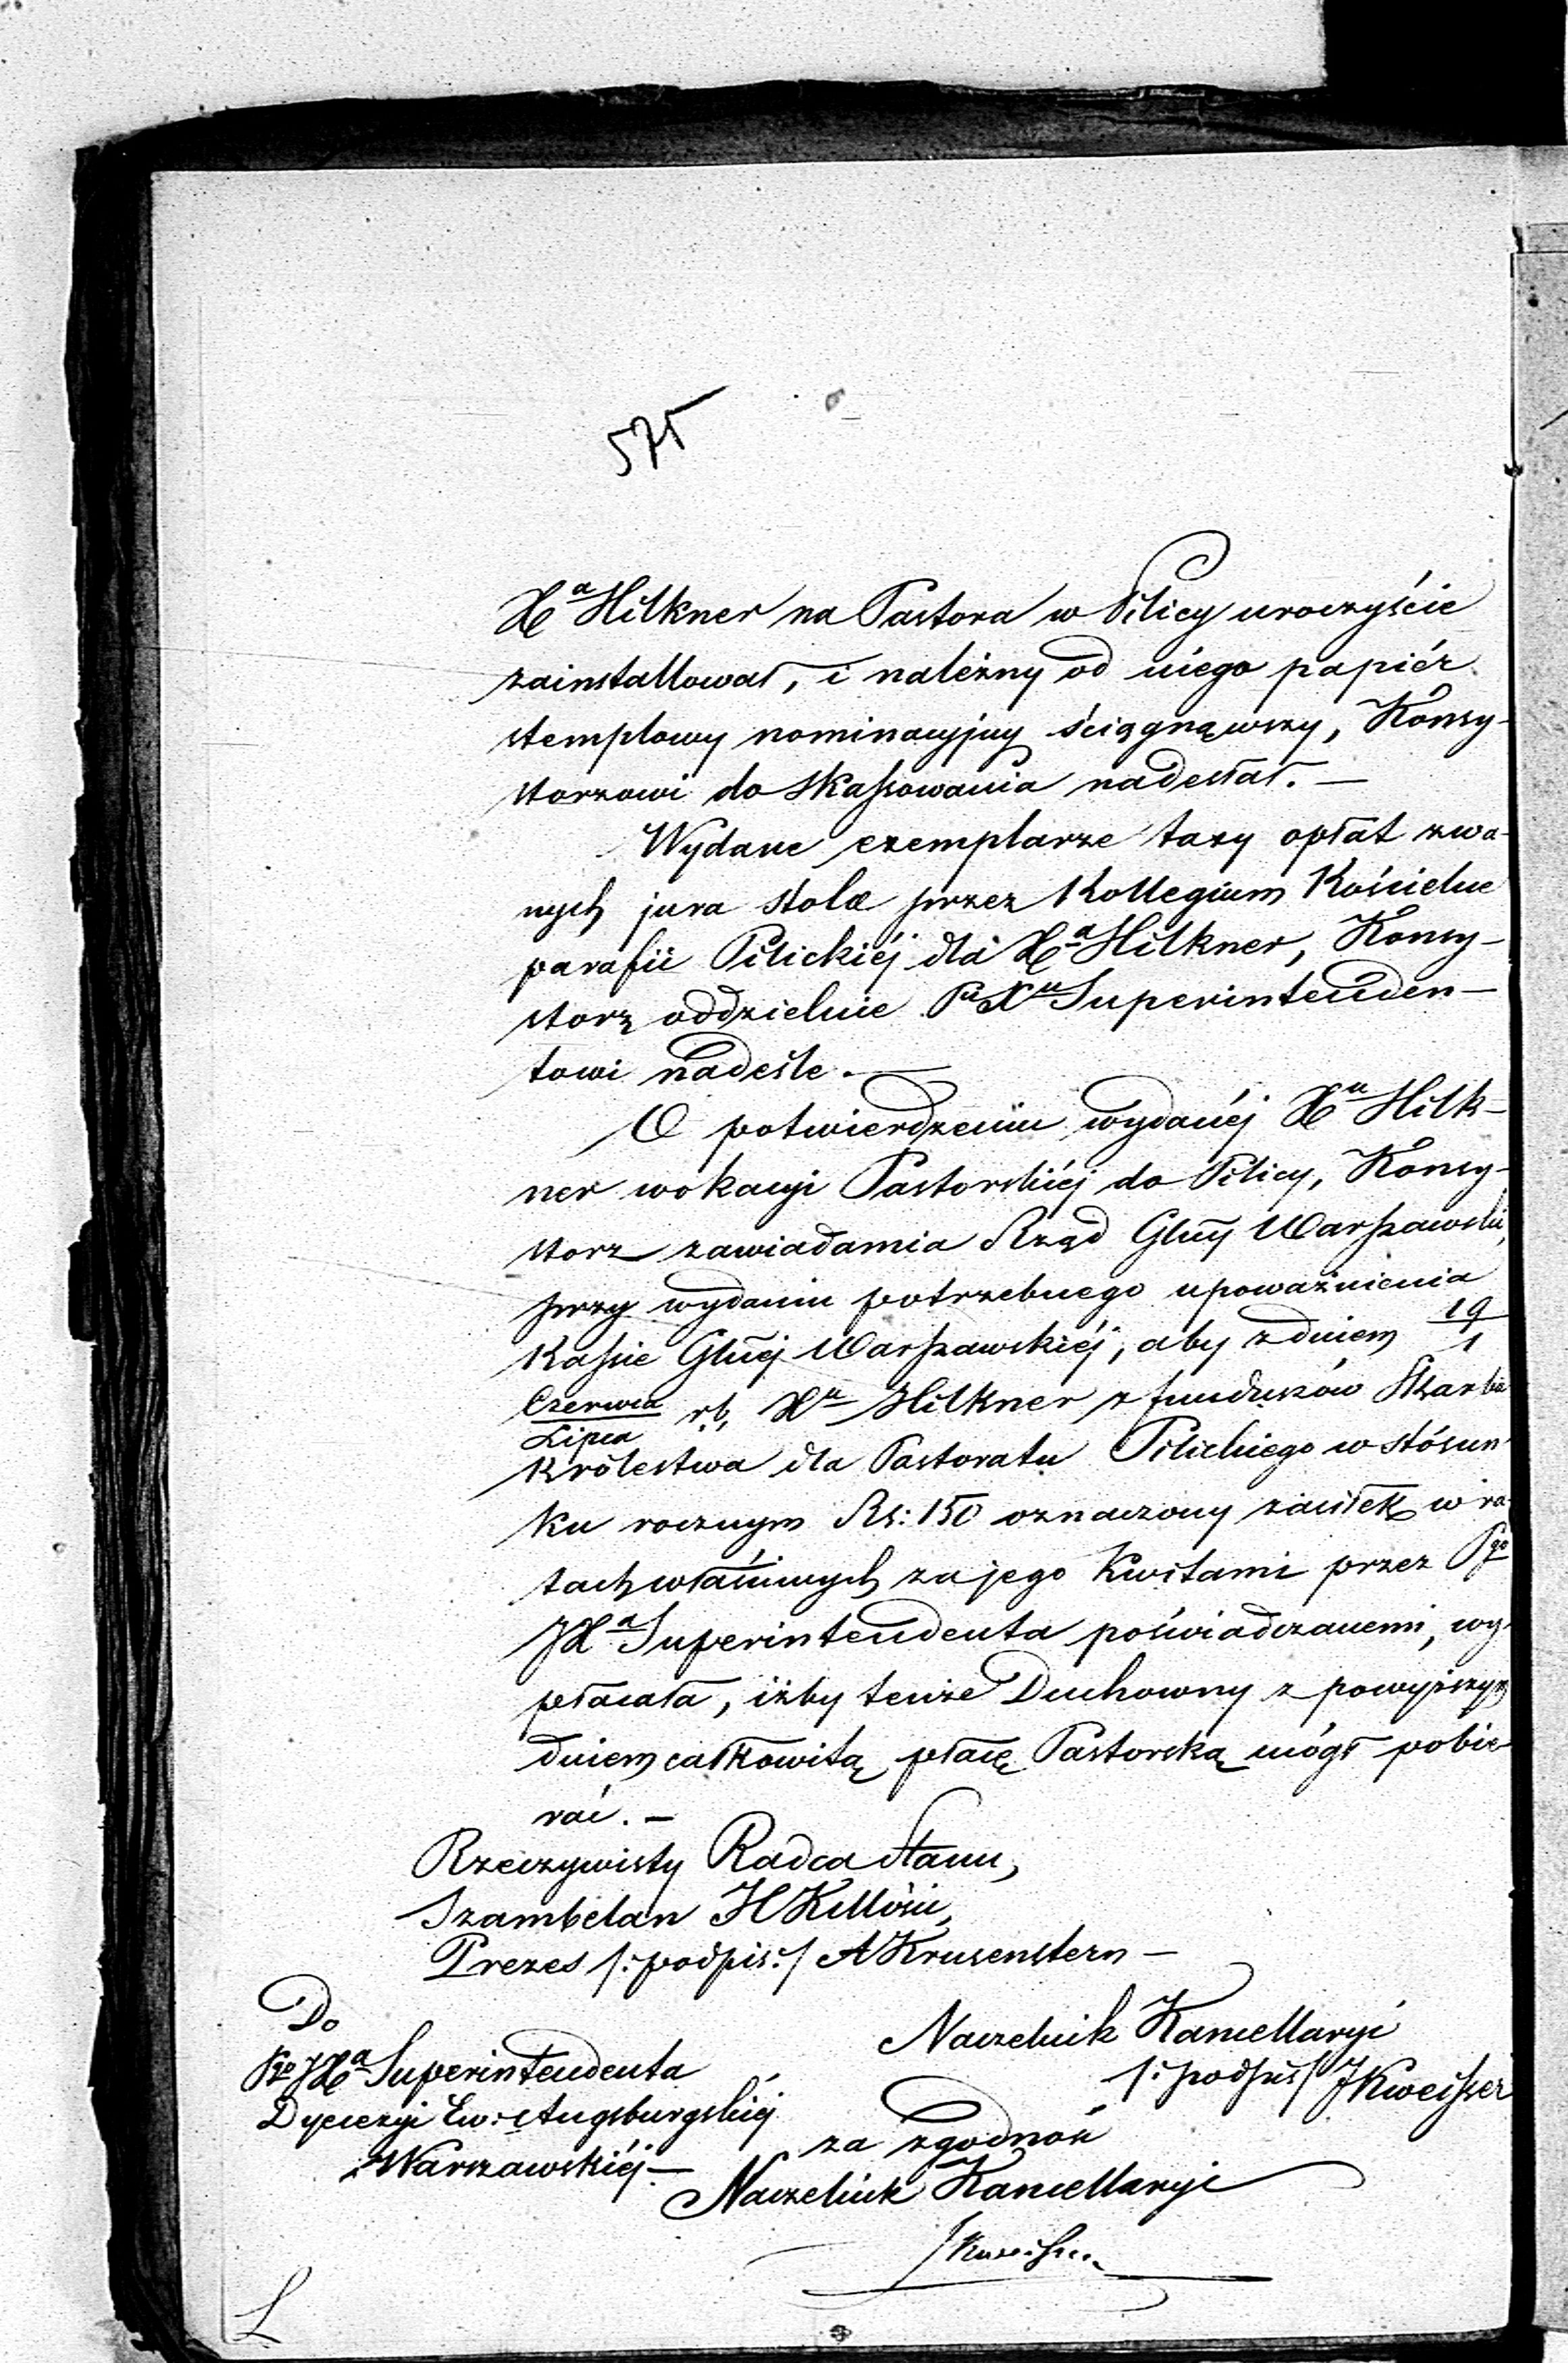 575
Xa Hilkner na Pastora w Pilicy uroczyście
zainstallował, i należny od niego papiér
stemplowy nominacyjny ściągnąwszy, Konsy-
storzowi do skassowania nadesłał. —
Wydane exemplarze taxy opłat zwa-
nych jura stolæ przez Kollegium Kościelne
parafii Pilickiéj dla Xa Hilkner, Konsy-
storz oddzielnie Pu Xu Superintenden-
towi nadeśle. —
O potwierdzeniu wydanéj Xu Hilk-
ner wokacyi Pastorskiéj do Pilicy, Konsy-
storz zawiadamia Rząd Glny Warszawski,
przy wydaniu potrzebnego upoważnienia
Kassie Glnéj Warszawskiéj, aby z dniem 19/1
Czerwca/Lipca r.b. Xu Hilkner z funduszów Skarbu
Królestwa dla Pastoratu Pilickiego w stósun-
ku rocznym Rs: 150 oznaczony zasiłek w ra-
tach właściwych za jego Kwitami przez Pgo
JXa Superintendenta poświadczanemi, wy-
płacała, iżby tenże Duchowny z powyższym
dniem całkowitą płacę Pastorską mógł pobie-
rać. —
Rzeczywisty Radca Stanu,
Szambelan
Prezes /:podpis:/ A Krusenstern —
Naczelnik Kancellaryi
/:podpis/ J Kweisser
Do
Pgo JXa Superintendenta
Dyecezyi Ew: Augsburgskiéj
Warszawskiéj. —
za zgodność
Naczelnik Kancellaryi
J Kweisser